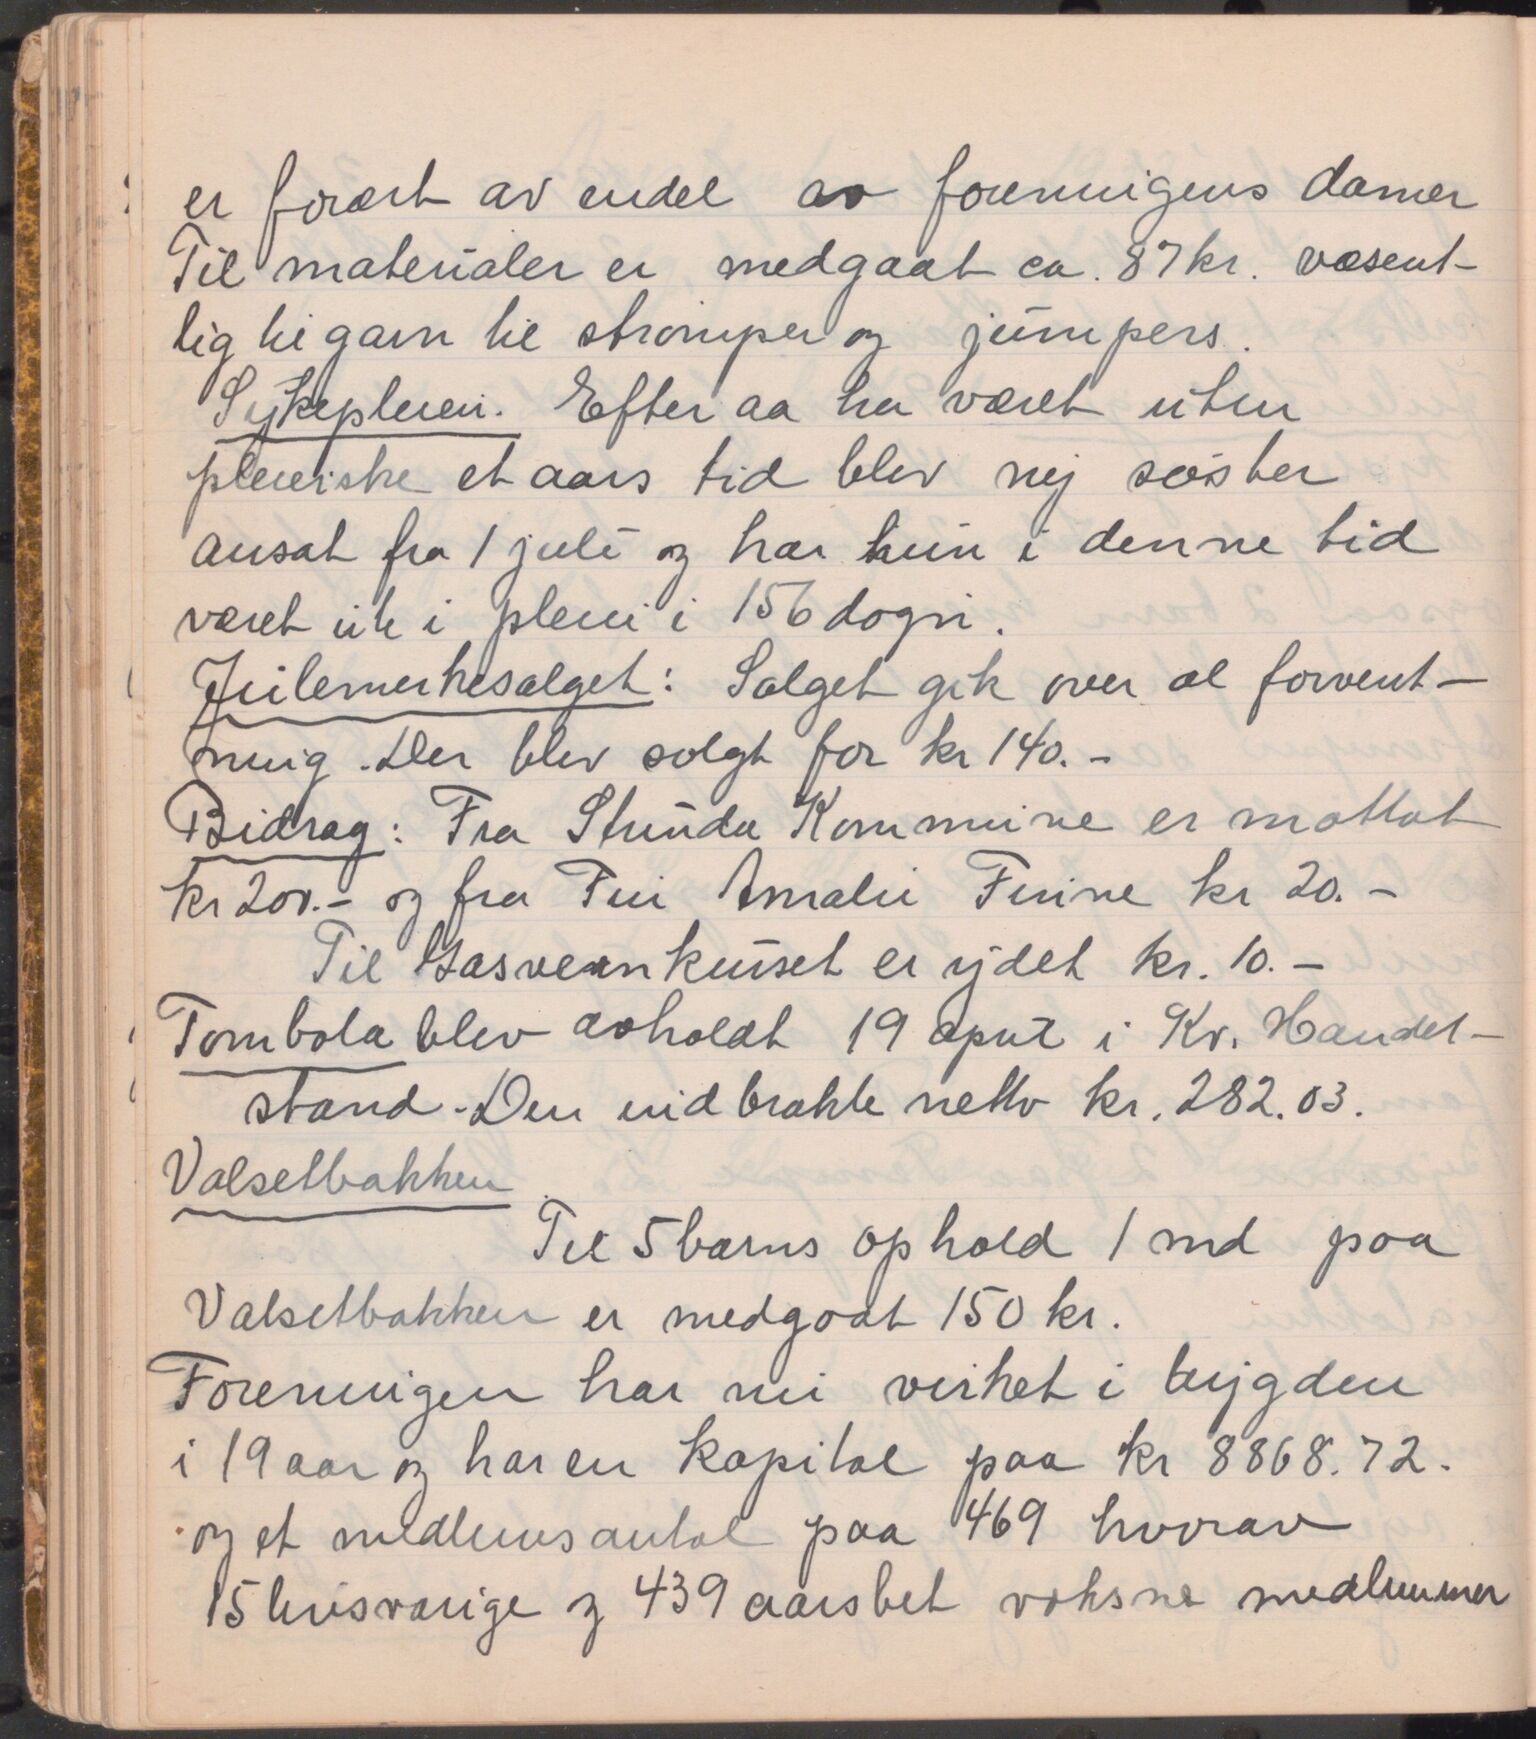 er forært av endel av foreningens damer
Til materialer er medgaat ca. 87 kr. væsent-
lig til garn til strømper og jumpers.
Sykepleien. Efter aa ha været uten
pleierske et aars tid blev ny søster
ansat fra 1 juli og har hun i denne tid
været ute i pleie i 156 døgn.
Julemerkesalget: Salget gik over al forvent-
ning. Der blev solgt for kr 140.-
Bidrag: Fra Strinda Kommune er mottat
kr 200.- og fra Fru Amalie Finne kr 20.-
Til Gasvernkurset er ydet kr. 10.-
Tombola blev avholdt 19 april i Kr. Handel-
stand. Den indbrakte netto kr. 282.03.
Valsetbakken
Til 5 barns ophold 1 md paa
Valsetbakken er medgaat 150 kr.
Foreningen har nu virket i bygden
i 19 aar og har en kapital paa kr 8868.72.
og et medlemsantal paa 469 hvorav
15 livsvarige og 439 aarsbet voksne medlemmer